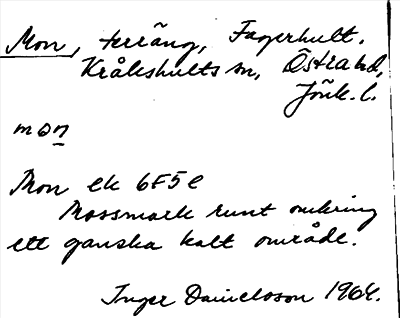 Mon, terräng, Fagerhult.
Kråkshults sn, Östra hd,
Jönk. l.
mon
Mon ek 6F5e
Mossmark runt omkring
ett ganska kalt område.
Inger Danielsson 1964.